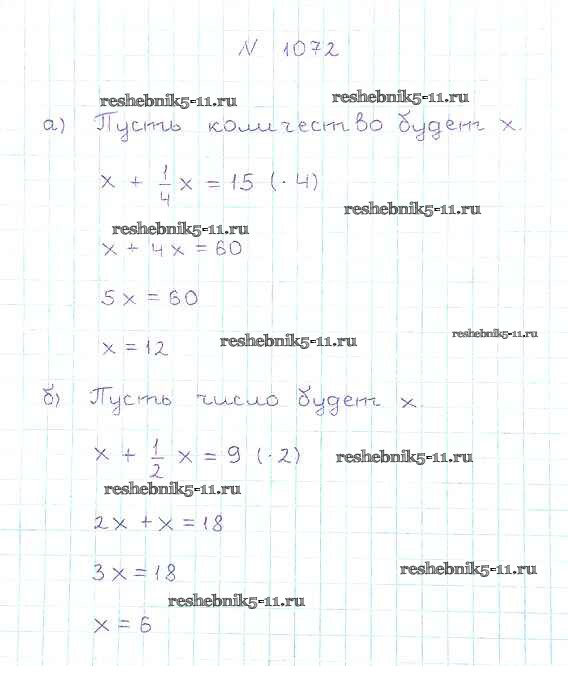 N 1072
reshebnik5-11.ru reshebnik5-11.ru
а) Пусть количество будет x.
x + 1/4 x = 15 (· 4)
reshebnik5-11.ru
reshebnik5-11.ru
x + 4x = 60
5x = 60
reshebnik5-11.ru
x = 12 reshebnik5-11.ru
б) Пусть число будет x.
x + 1/2 x = 9 (· 2) reshebnik5-11.ru
reshebnik5-11.ru
2x + x = 18
3x = 18 reshebnik5-11.ru
reshebnik5-11.ru
x = 6